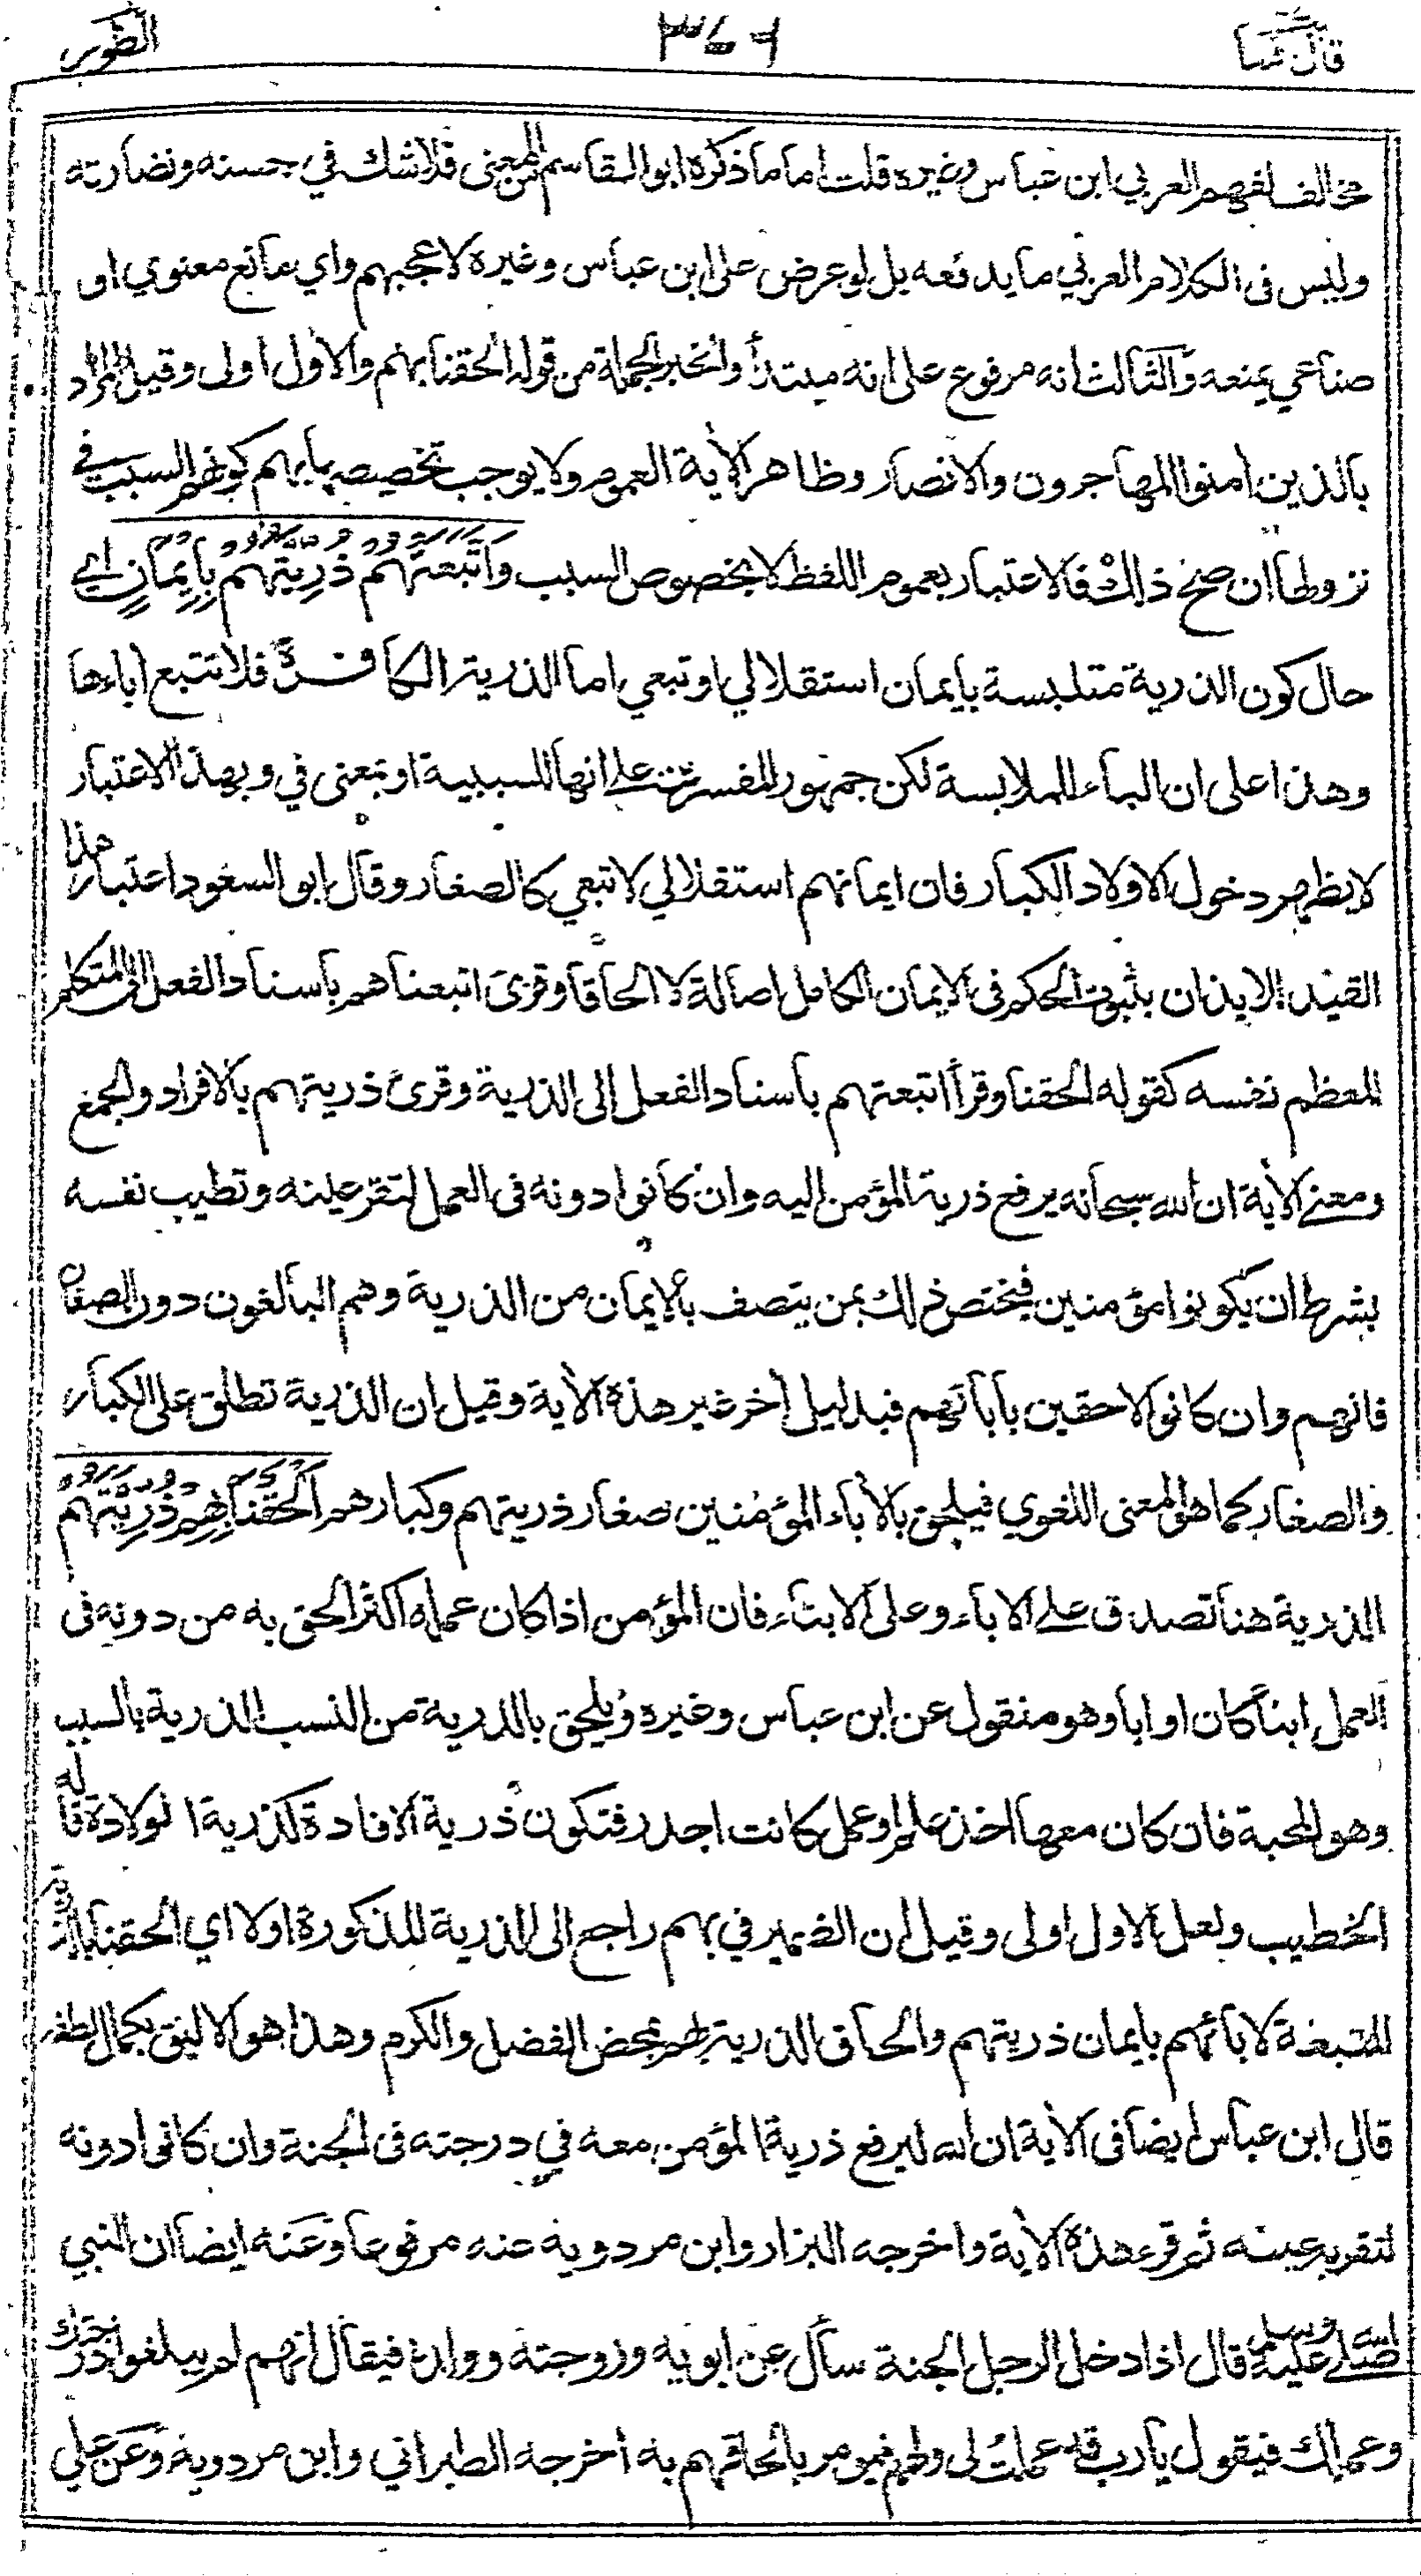 الطور
٣٧٦
مخالف لفهم العربي ابن عباس وغيره قلت اما ما ذكره ابو القاسم من المعنى فلا شك في حسنه ونضارته
وليس فى الكلام العربي ما يدفعه بل لو عرض على ابن عباس وغيره لاعجبهم واي مانع معنوي او
صناعي يمنعه والثالث انه مرفوع على انه مبتدأ والخبر الجملة من قوله الحقنا بهم والأول اولى وقيل المراد
بالذين امنوا المهاجرون والانصار وظاهر الأية العموم ولا يوجب تخصيصها بهم كونهم السبب في
نزولها ان صح ذلك فالاعتبار بعموم اللفظ لا بخصوص السبب وَاتَّبَعَتْهُمْ ذُرِّيَّتُهُمْ بِإِيْمَانٍ اي
حال كون الذرية متلبسة بايمان استقلالي او تبعي اما الذرية الكافرة فلا تتبع اباءها
وهذا على ان الباء للملابسة لكن جمهور المفسرين على انها للسببية او بمعنى في وبهذا الاعتبار
لا يظهر دخول الاولاد الكبار فان ايمانهم استقلالي لا تبعي كالصغار وقال ابو السعود اعتبار هذا
القيد للايذان بثبوت الحكم فى الايمان الكامل اصالة لا الحاقا وقرئ اتبعناهم باسناد الفعل الى المتكلم
المعظم نفسه كقوله الحقنا وقرأ اتبعتهم باسناد الفعل الى الذرية وقرئ ذريتهم بالافراد والجمع
ومعنى الأية ان الله سبحانه يرفع ذرية المؤمن اليه وان كانوا دونه فى العمل لتقر عينه وتطيب نفسه
بشرط ان يكونوا مؤمنين فيختص ذلك بمن يتصف بالايمان من الذرية وهم البالغون دون الصغار
فانهم وان كانوا لاحقين بأبائهم فبدليل أخر غير هذه الأية وقيل ان الذرية تطلق على الكبار
والصغار كما هو المعنى اللغوي فيلحق بالأباء المؤمنين صغار ذريتهم وكبارهم اَلْحَقْنَا بِهِمْ ذُرِّيَّتَهُمْ
الذرية هنا تصدق على الاباء وعلى الابناء فان المؤمن اذا كان عمله اكثر الحق به من دونه فى
العمل ابنا كان او ابا وهو منقول عن ابن عباس وغيره ويلحق بالذرية من النسب الذرية بالسبب
وهو المحبة فان كان معها اخذ علم او عمل كانت اجدر فتكون ذرية الافادة كذرية الولادة قاله
الخطيب ولعل الاول اولى وقيل ان الضمير في بهم راجع الى الذرية المذكورة اولا اي الحقنا بالذرية
المتبعة لابائهم بايمان ذريتهم والحاق الذرية بهم بمحض الفضل والكرم وهذا هو الاليق بكمال
قال ابن عباس ايضا فى الأية ان الله ليرفع ذرية المؤمن معه في درجته فى الجنة وان كانوا دونه
لتقر به عينه ثم قرء هذه الأية واخرجه البزار وابن مردويه عنه مرفوعا وعنه ايضا ان النبي
صلى الله عليه وسلم قال اذا دخل الرجل الجنة سأل عن ابويه وزوجته وولده فيقال انهم لم يبلغوا درجتك
وعملك فيقول يا رب قد عملت لى ولهم فيومر بالحاقهم به اخرجه الطبراني وابن مردويه وعن علي